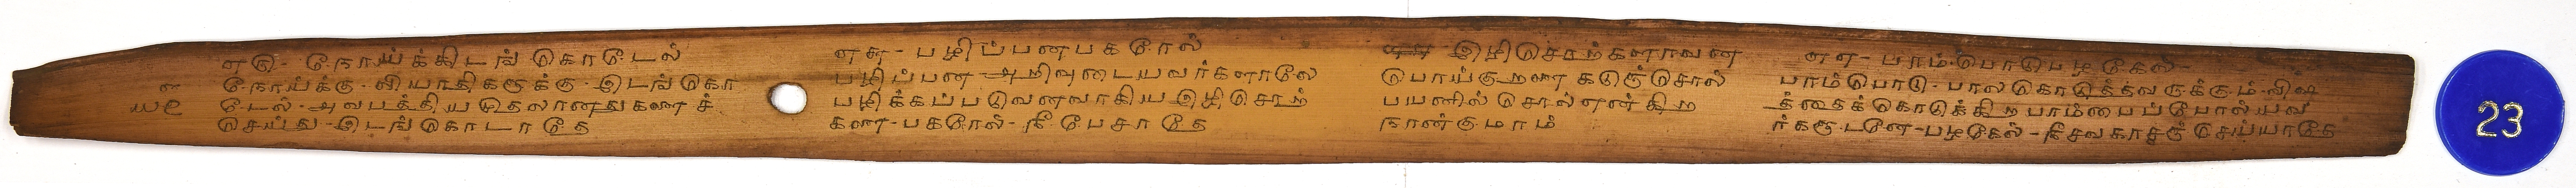 எசு - நோய்க்கிடங் கொடேல்
நோய்க்கு - வியாதிகளுக்கு - இடங்கொ
டேல் - அவபத்திய முதலானதுகளைச்
செய்து - இடங்கொடாதே
எஎ - பழிப்பனபகரேல்
பழிப்பன - அறிவுடையவர்களாலே
பழிக்கப்படுவனவாகிய இழிசொற்
களை - பகரேல் - நீ பேசாதே
இழிசொற்களாவன
பொய்குறளை கடுஞ்சொல்
பயனில்சொல் என்கிற
நான்குமாம்
எஎ - பாம்பொடுபழகேல் -
பாம்பொடு - பால்கொடுத்தவருக்கும் - விஷ
த்தைக்கொடுக்கிற பாம்பைப்போல்பவ
ர்களுடனே - பழகேல் - நீ சவகாசஞ் செய்யாதே
23